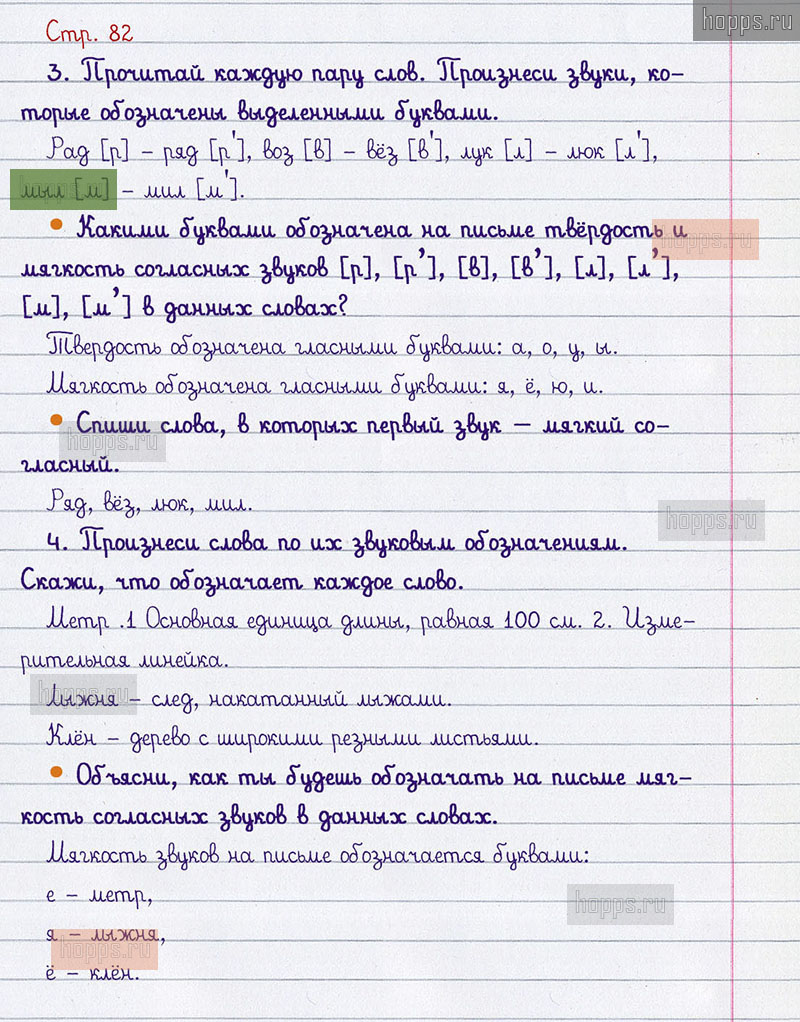 hopps.ru
Стр. 82
3. Прочитай каждую пару слов. Произнеси звуки, ко-
торые обозначены выделенными буквами.
Рад [р] – ряд [р'], воз [в] – вёз [в'], лук [л] – люк [л'],
мыл [м] – мил [м'].
• Какими буквами обозначена на письме твёрдость и
hopps.ru
мягкость согласных звуков [р], [р'], [в], [в'], [л], [л'],
[м], [м'] в данных словах?
Твердость обозначена гласными буквами: а, о, у, ы.
Мягкость обозначена гласными буквами: я, ё, ю, и.
• Спиши слова, в которых первый звук — мягкий со-
hopps.ru
гласный.
Ряд, вёз, люк, мил.
hopps.ru
4. Произнеси слова по их звуковым обозначениям.
Скажи, что обозначает каждое слово.
Метр .1 Основная единица длины, равная 100 см. 2. Изме-
рительная линейка.
hopps.ru
Лыжня – след, накатанный лыжами.
Клён – дерево с широкими резными листьями.
• Объясни, как ты будешь обозначать на письме мяг-
кость согласных звуков в данных словах.
Мягкость звуков на письме обозначается буквами:
е – метр,
hopps.ru
я – лыжня,
hopps.ru
ё – клён.